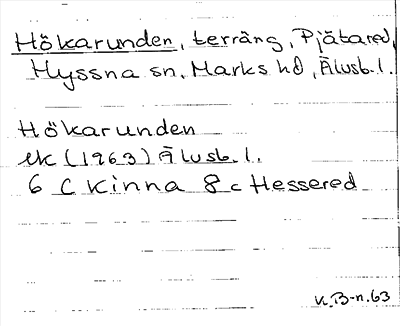 Hökarunden, terräng, Pjätared,
Hyssna sn. Marks hd, Älvsb. l.
Hökarunden
ek (1963) Älvsb. l.
6 c Kinna 8 c Hessered
K.B-n.63